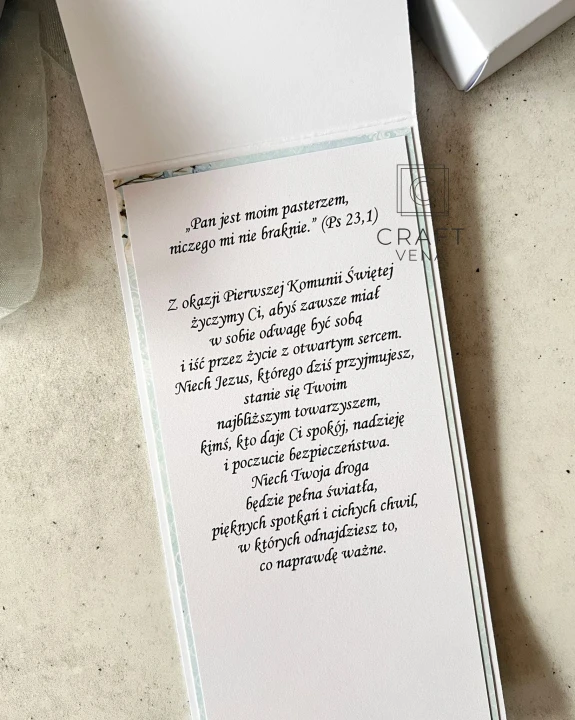 „Pan jest moim pasterzem,
niczego mi nie braknie.” (Ps 23,1)
CRAFT
VENA
Z okazji Pierwszej Komunii Świętej
życzymy Ci, abyś zawsze miał
w sobie odwagę być sobą
i iść przez życie z otwartym sercem.
Niech Jezus, którego dziś przyjmujesz,
stanie się Twoim
najbliższym towarzyszem,
kimś, kto daje Ci spokój, nadzieję
i poczucie bezpieczeństwa.
Niech Twoja droga
będzie pełna światła,
pięknych spotkań i cichych chwil,
w których odnajdziesz to,
co naprawdę ważne.